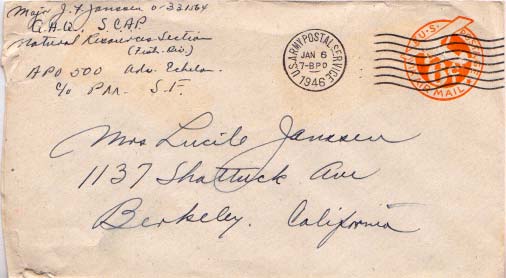 Major J. F. Janssen 0-331164
G.H.Q. SCAP
Natural Resources Section
(Fish. Div.)
APO 500 Adv. Echelon
c/o P.M. S.F.
U.S. ARMY POSTAL SERVICE
JAN 6
7-BPO
1946
U.S. POSTAGE
AIR MAIL
Mrs Lucile Janssen
1137 Shattuck Ave
Berkeley. California